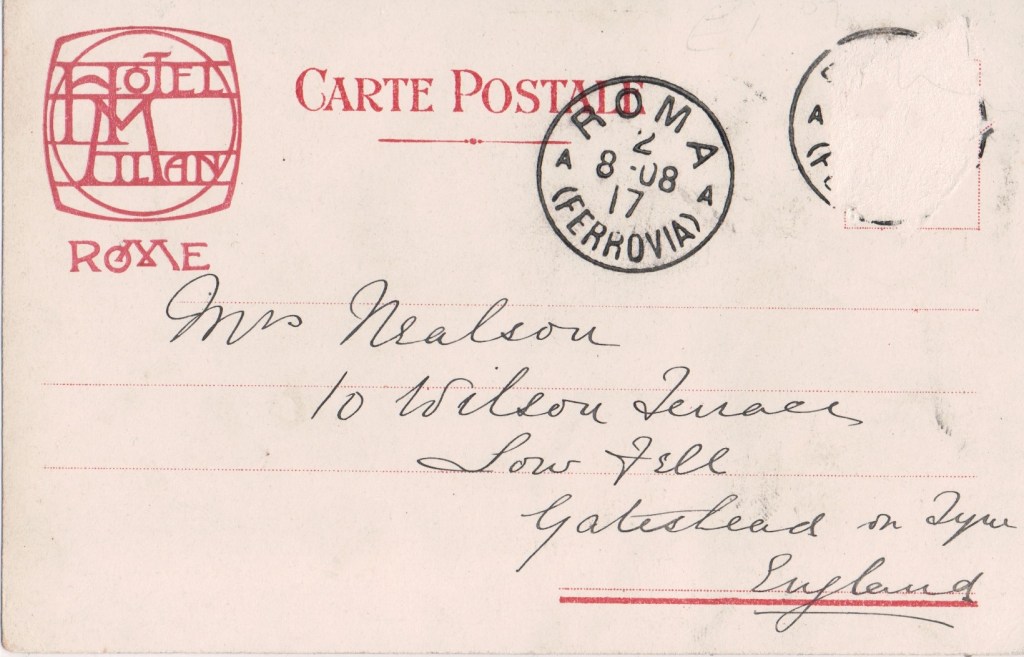 HOTEL
MILAN
ROME
CARTE POSTALE
ROMA
2
8-08
17
A A
(FERROVIA)
A
Mrs Nealson
10 Wilson Terrace
Low Fell
Gateshead on Tyne
England